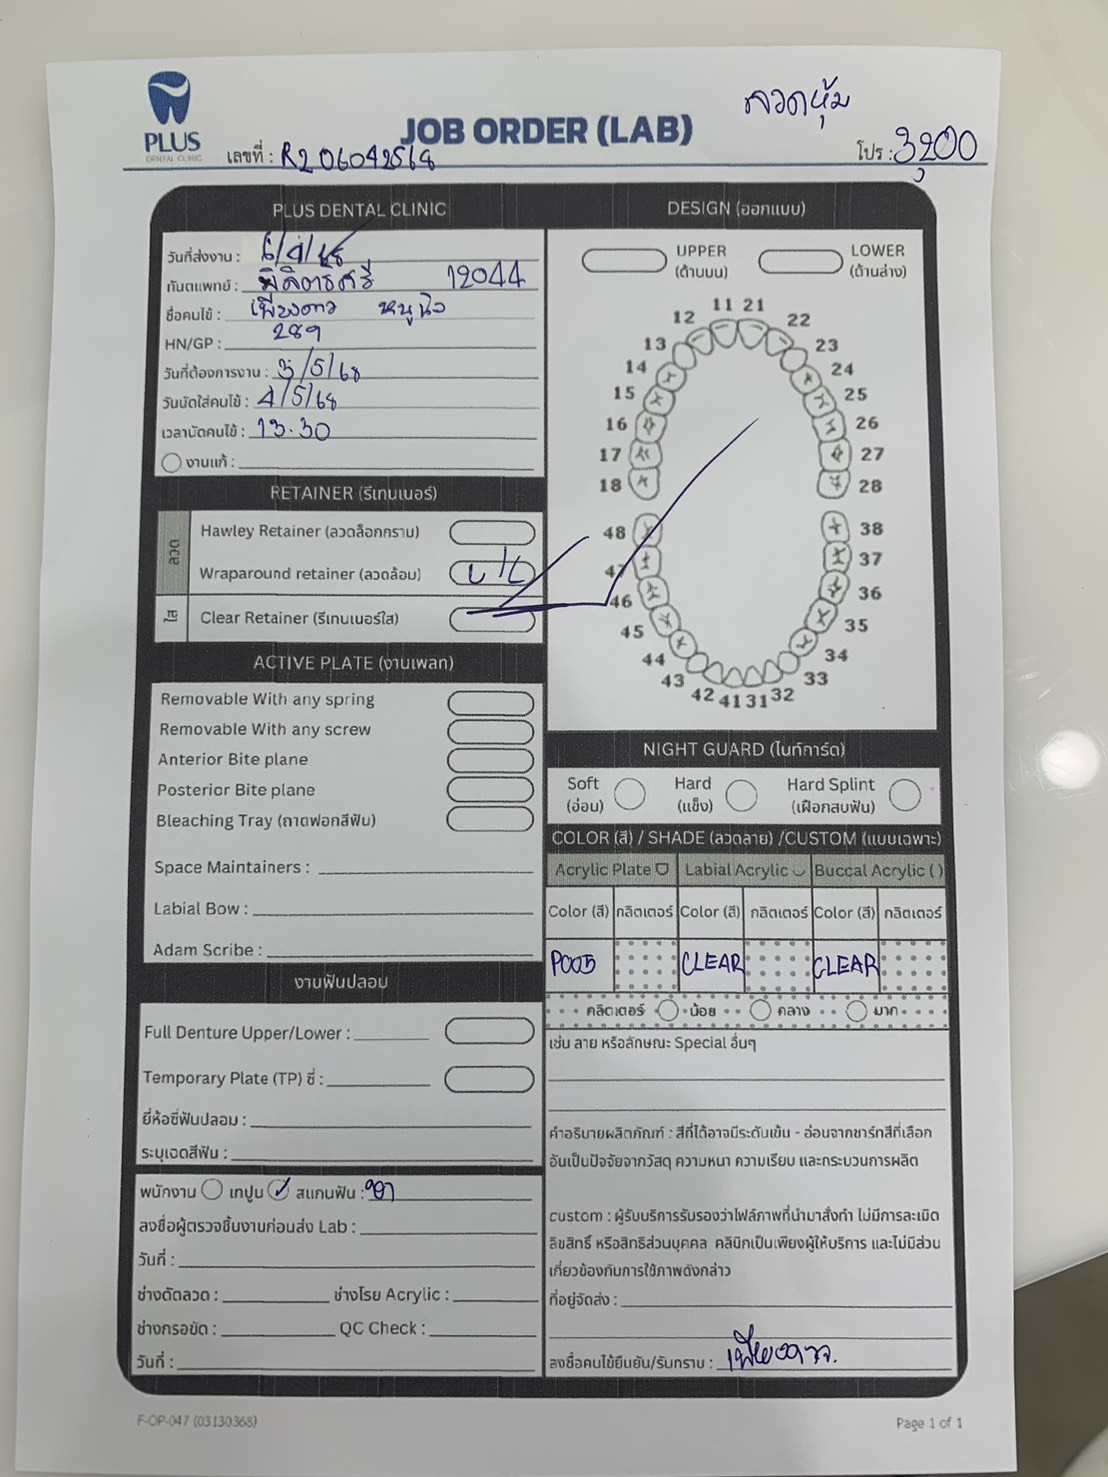 PLUS
DENTAL CLINIC
JOB ORDER (LAB)
ลวดหุ้ม
เลขที่ : R2 06042568
โปร : 3,200
PLUS DENTAL CLINIC
วันที่ส่งงาน : 6/4/68
ทันตแพทย์ : 12044
ชื่อคนไข้ : เพียงดาว
HN/GP : 289
วันที่ต้องการงาน : 3/5/68
วันนัดใส่คนไข้ : 4/5/68
เวลานัดคนไข้ : 13.30
งานแก้ :
RETAINER (รีเทนเนอร์)
ลวด
Hawley Retainer (ลวดล็อกกราม)
Wraparound retainer (ลวดล้อม) U/L
ใส
Clear Retainer (รีเทนเนอร์ใส)
ACTIVE PLATE (งานเพลท)
Removable With any spring
Removable With any screw
Anterior Bite plane
Posterior Bite plane
Bleaching Tray (ถาดฟอกสีฟัน)
Space Maintainers :
Labial Bow :
Adam Scribe :
งานฟันปลอม
Full Denture Upper/Lower :
Temporary Plate (TP) ซี่ :
ยี่ห้อซี่ฟันปลอม :
ระบุเฉดสีฟัน :
พนักงาน เทปูน สแกนฟัน :
ลงชื่อผู้ตรวจชิ้นงานก่อนส่ง Lab :
วันที่ :
ช่างดัดลวด : ช่างโรย Acrylic :
ช่างกรอขัด : QC Check :
วันที่ :
DESIGN (ออกแบบ)
UPPER
(ด้านบน)
LOWER
(ด้านล่าง)
11 21
12 22
13 23
14 24
15 25
16 26
17 27
18 28
48 38
47 37
46 36
45 35
44 34
43 33
42 41 31 32
NIGHT GUARD (ไนท์การ์ด)
Soft
(อ่อน)
Hard
(แข็ง)
Hard Splint
(เฝือกสบฟัน)
COLOR (สี) / SHADE (ลวดลาย) /CUSTOM (แบบเฉพาะ)
Acrylic Plate Labial Acrylic Buccal Acrylic ( )
Color (สี) กลิตเตอร์ Color (สี) กลิตเตอร์ Color (สี) กลิตเตอร์
P005 CLEAR CLEAR
กลิตเตอร์ น้อย กลาง มาก
เช่น ลาย หรือลักษณะ Special อื่นๆ
คำอธิบายผลิตภัณฑ์ : สีที่ได้อาจมีระดับเข้ม - อ่อนจากชาร์ทสีที่เลือก
อันเป็นปัจจัยจากวัสดุ ความหนา ความเรียบ และกระบวนการผลิต
custom : ผู้รับบริการรับรองว่าไฟล์ภาพที่นำมาสั่งทำ ไม่มีการละเมิด
ลิขสิทธิ์ หรือสิทธิส่วนบุคคล คลินิกเป็นเพียงผู้ให้บริการ และไม่มีส่วน
เกี่ยวข้องกับการใช้ภาพดังกล่าว
ที่อยู่จัดส่ง :
ลงชื่อคนไข้ยืนยัน/รับทราบ :
F-OP-047 (03130368)
Page 1 of 1